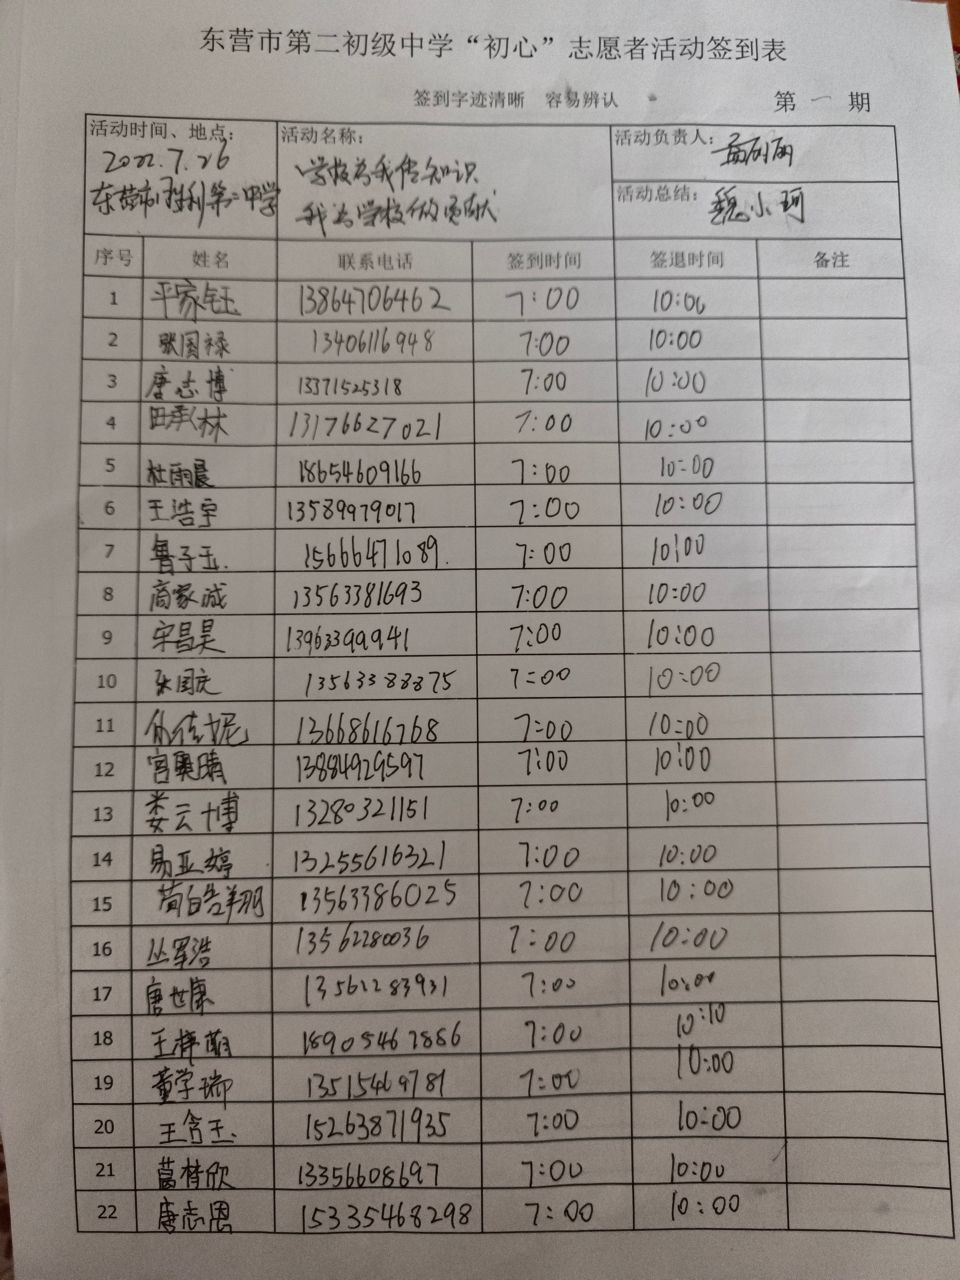 东营市第二初级中学“初心”志愿者活动签到表
签到字迹清晰 容易辨认
第 一 期
活动时间、地点: 活动名称: 活动负责人: 孟丽丽
2022.7.26 学校为我传知识
东营市胜利第二中学 我为学校做贡献 活动总结: 魏小珂
序号 姓名 联系电话 签到时间 签退时间 备注
1 平家钰 13864706462 7:00 10:00
2 张国禄 13406116948 7:00 10:00
3 唐志博 13371525318 7:00 10:00
4 田承林 13176627021 7:00 10:00
5 杜雨晨 18654609166 7:00 10:00
6 王浩宇 13589979017 7:00 10:00
7 鲁子玉 15666471089. 7:00 10:00
8 商家诚 13563381693 7:00 10:00
9 宋昌昊 13963399941 7:00 10:00
10 张国庆 13563388875 7:00 10:00
11 佳妮 13668616768 7:00 10:00
12 宫奥晴 13884929597 7:00 10:00
13 娄云博 13280321151 7:00 10:00
14 易亚婷 13255616321 7:00 10:00
15 荀皓翔 13563386025 7:00 10:00
16 丛军浩 13562280036 7:00 10:00
17 唐世康 13561283931 7:00 10:00
18 王梓萌 18905467886 7:00 10:10
19 董学瑞 13515469781 7:00 10:00
20 王含玉 15263871935 7:00 10:00
21 葛梦欣 13356608697 7:00 10:00
22 唐志恩 15335468298 7:00 10:00